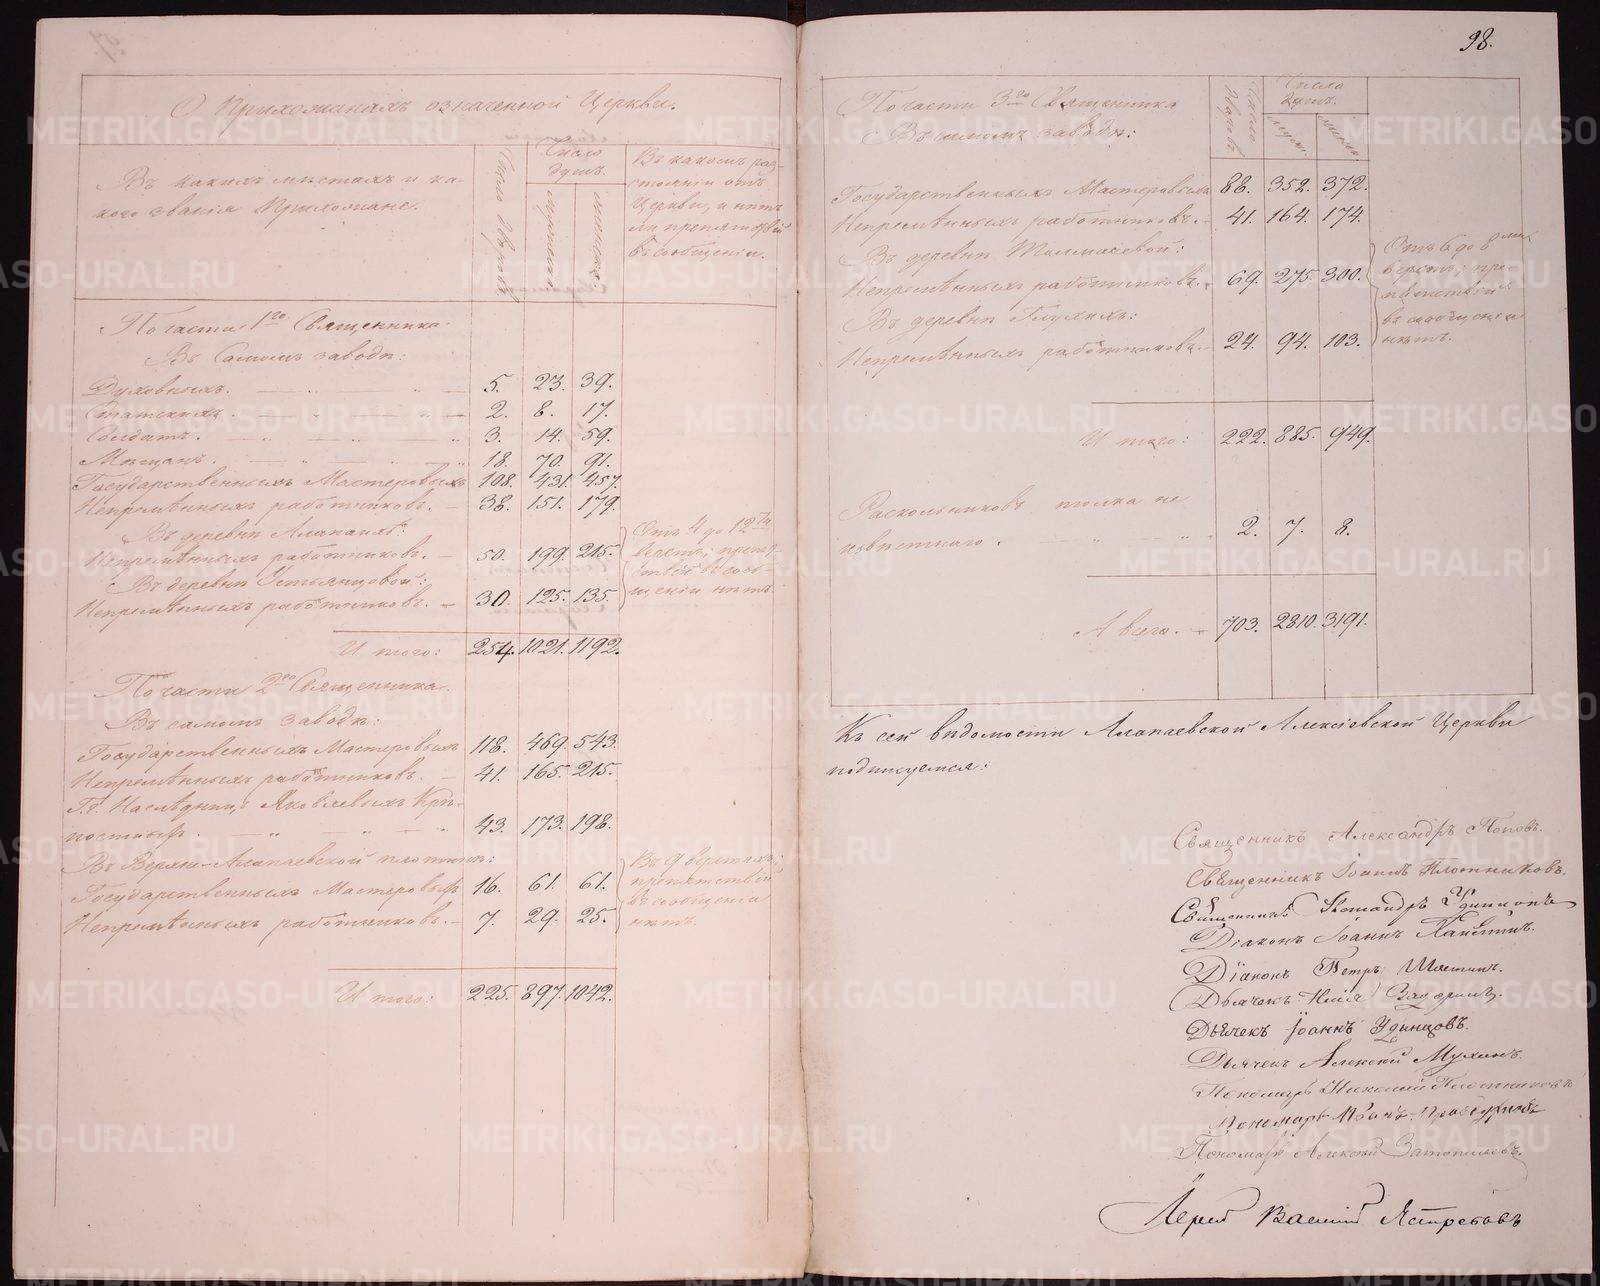 О Прихожанахъ означенной Церкви.
Въ какихъ мѣстахъ и ка-
кого званія Прихожане.
Число дворовъ.
Число
душъ.
мужска.
женска.
Въ какомъ раз-
стояніи отъ
Церкви, и нѣтъ
ли препятствій
въ сообщеніи.
По части 1го Священника
Въ самомъ заводѣ:
Духовныхъ. 5. 23. 39.
Статскихъ. 2. 8. 17.
Солдатъ. 3. 14. 59.
Мѣщанъ. 18. 70. 91.
Государственныхъ Мастеровыхъ 108. 431. 457.
Непремѣнныхъ работниковъ. 38. 151. 179.
Въ деревнѣ Алапаихѣ:
Непремѣнныхъ работниковъ. 50. 199. 215.
Въ деревнѣ Устьянцовой:
Непремѣнныхъ работниковъ. 30. 125. 135.
Отъ 4 до 12ти
верстъ; препят-
ствій въ сооб-
щеніи нѣтъ.
И того: 254. 1021. 1192.
По части 2го Священника.
Въ самомъ заводѣ:
Государственныхъ Мастеровыхъ 118. 469. 543.
Непремѣнныхъ работниковъ. 41. 165. 215.
Г.г. Наслѣдниц. Яковлевыхъ Крѣ-
постныхъ. 43. 173. 198.
Въ Верхне-Алапаевской плотинѣ:
Государственныхъ Мастеровыхъ 16. 61. 61.
Непремѣнныхъ работниковъ. 7. 29. 25.
Въ 9 верстахъ;
препятствій
въ сообщеніи
нѣтъ.
И того: 225. 897. 1042.
98.
По части 3го Священника
Въ самомъ заводѣ:
Число
дворовъ
Число
душъ.
мужс.
женс.
Государственныхъ Мастеровыхъ 88. 352. 372.
Непремѣнныхъ работниковъ. 41. 164. 174.
Въ деревнѣ Толмачевой:
Непремѣнныхъ работниковъ. 69. 275. 300.
Въ деревнѣ Глухихъ:
Непремѣнныхъ работниковъ. 24. 94. 103.
Отъ 6 до 8ми
верстъ; пре-
пятствій
въ сообщеніи
нѣтъ.
И того: 222. 885. 949.
Раскольниковъ толка не
извѣстнаго. 2. 7. 8.
А всего. 703. 2810. 3191.
Къ сей вѣдомости Алапаевской Алексіевской Церкви
подписуемся:
Священникъ Александръ Поповъ.
Священникъ Іоаннъ Плотниковъ.
Священникъ Александръ Удинцовъ
Діаконъ Іоаннъ
Діаконъ Петръ
Дьячокъ Илія
Дьячекъ Іоаннъ Удинцовъ.
Дьячекъ Алексѣй Мухинъ.
Пономарь Николай Плотниковъ
Пономарь Иванъ
Пономарь Алексѣй
Іерей Василій Ястребовъ
METRIKI.GASO-URAL.RU